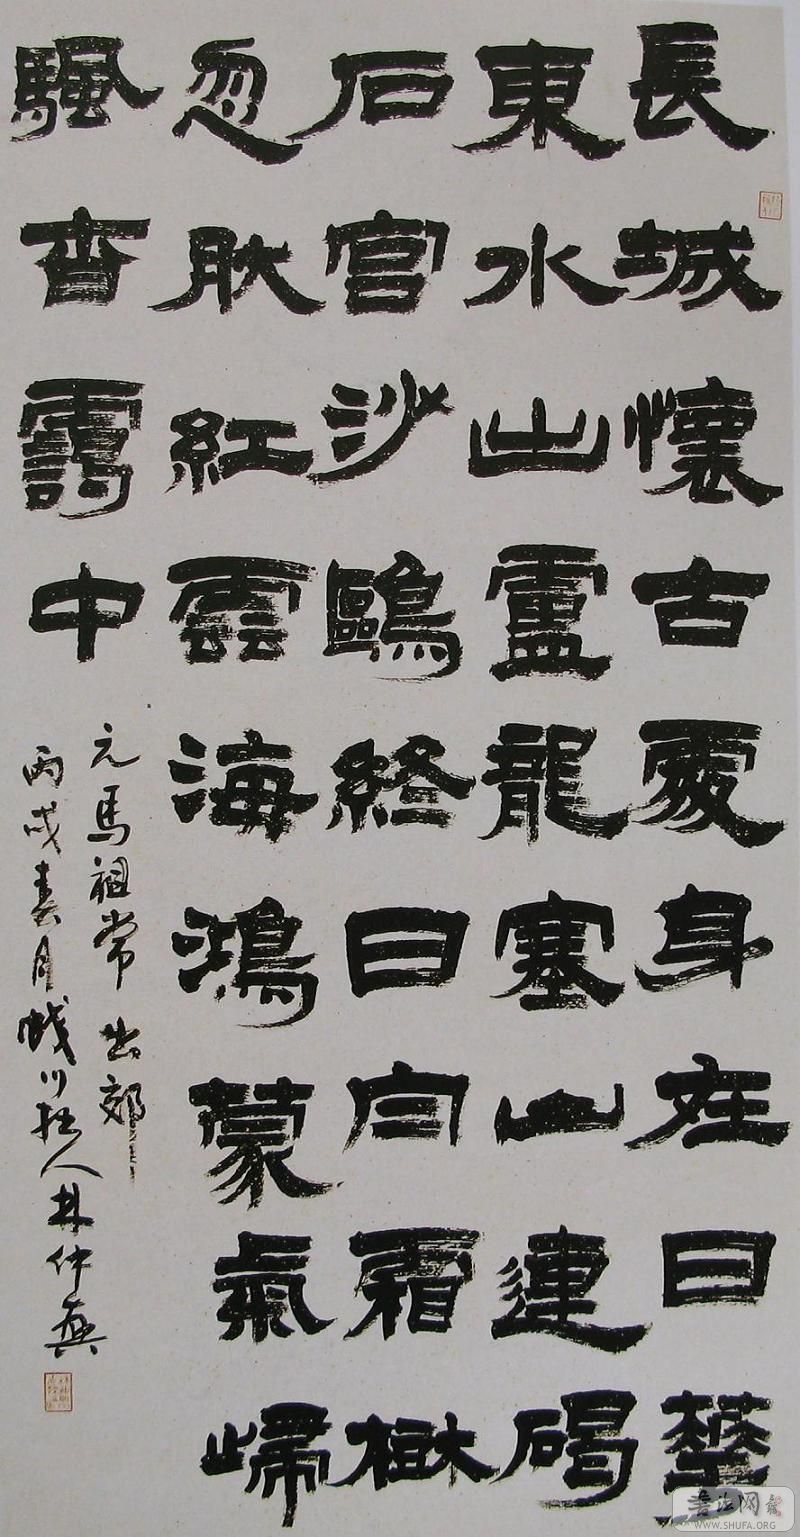 長城懷古處身在日華
東水出盧龍塞山連碣
石宮沙鷗終日白霜楸
忽耿紅雲海鴻蒙氣歸
颿杳靄中
元馬祖常出郊
丙戌春月川人林仲興
書法网
WWW.SHUFA.ORG